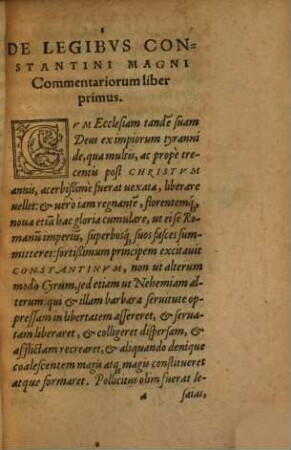 DE LEGIBVS CON=
STANTINI MAGNI
Commentariorum liber
primus.
CVM Ecclesiam tandẽ suam
Deus ex impiorum tyranni
de, qua multis, ac prope tre-
centis post CHRISTVM
annis, acerbissime fuerat vexata, liberare
vellet: & uero iam regnantẽ, florentemq́,
noua etiã hac gloria cumulare, ut ei se Ro-
manũ imperiũ, superbosq́ suos fasces sum-
mitteret: fortissimum principem excitauit
CONSTANTINVM, non ut alterum
modo Cyrum, sed etiam ut Nehemiam al-
terum: qui & illam barbara seruitute op-
pressam in libertatem assereret, & serua-
tam liberaret, & colligeret dispersam, &
afflictam recrearet, & aliquando denique
coalescentem magis atq́ magis constitueret
atque formaret. Pollicitus olim fuerat Ie-
a saias,